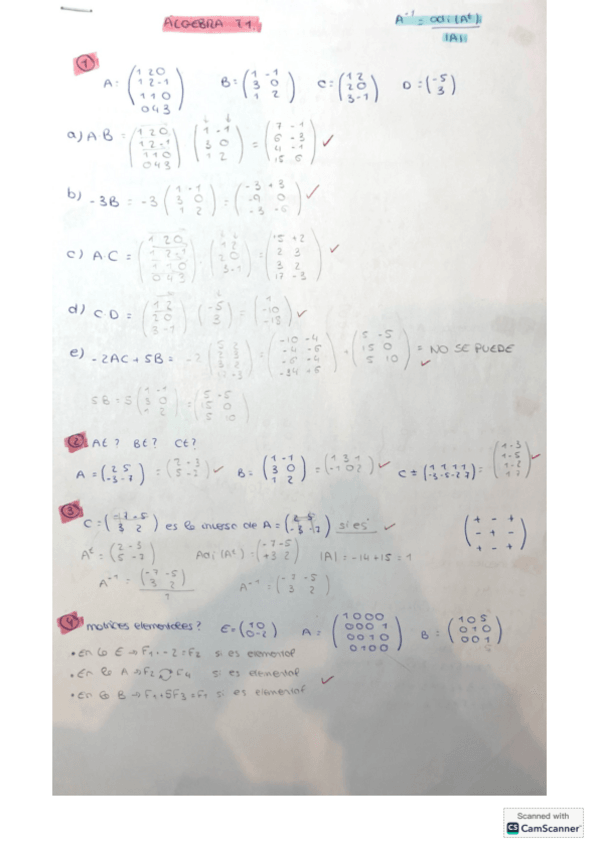 ÁLGEBRA T1.
A⁻¹ = adj (Aᵗ) / |A|
① A: (1 2 0 / 1 2 -1 / 1 1 0 / 0 4 3) B = (1 -1 / 3 0 / 1 2) C = (1 2 / 2 0 / 3 -1) D = (-5 / 3)
a) A B = (1 2 0 / 1 2 -1 / 1 1 0 / 0 4 3) (1 -1 / 3 0 / 1 2) = (7 -1 / 6 -3 / 4 -1 / 15 6) ✓
b) -3B = -3 (1 -1 / 3 0 / 1 2) = (-3 +3 / -9 0 / -3 -6) ✓
c) A·C = ✓
d) C·D = (1 2 / 2 0 / 3 -1) (-5 / 3) = (1 / -10 / -18) ✓
e) -2AC + 5B = -2 = (-10 -4 / -4 -6 / -6 -4 / -34 +6) = (5 -5 / 15 0 / 5 10) = NO SE PUEDE ✓
5B = 5 (1 -1 / 3 0 / 1 2) = (5 -5 / 15 0 / 5 10)
② At? Bt? Ct?
A = (2 5 / -3 -7) = ✓ B = (1 -1 / 3 0 / 1 2) = (1 3 1 / -1 0 2) ✓ C = (1 1 1 1 / -3 -5 -2 7) = ✓
③ C = (-7 -5 / 3 2) es la inversa de A = (2 5 / -3 -7) si es ✓
(+ - + / - + - / + - +)
Aᵗ = (2 -3 / 5 -7) Adj (Aᵗ) = (-7 -5 / +3 2) |A| = -14 + 15 = 1
A⁻¹ = (-7 -5 / 3 2) / 1 A⁻¹ = (-7 -5 / 3 2)
④ matrices elementales? E = (1 0 / 0 -2) A = (1 0 0 0 / 0 0 0 1 / 0 0 1 0 / 0 1 0 0) B = (1 0 5 / 0 1 0 / 0 0 1)
• En la E → F₂ si es elemental
• En la A → F₂ F₄ si es elemental
• En la B → F₁ + 5F₃ = F₁ si es elemental ✓
Scanned with
CS CamScanner